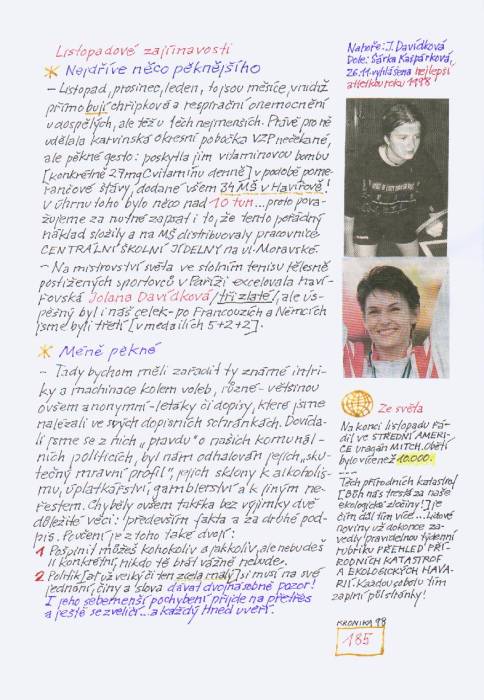 Listopadové zajímavosti
Nejdříve něco pěknějšího
– Listopad, prosinec, leden, to jsou měsíce, v nichž
přímo bují chřipková a respirační onemocnění
u dospělých, ale též u těch nejmenších. Právě pro ně
udělala karvinská okresní pobočka VZP nečekané,
ale pěkné gesto: poskytla jim vitaminovou bombu
[konkrétně 27mg C vitaminu denně] v podobě pome-
rančové šťávy, dodané všem 34 MŠ v Havířově!
V úhrnu toho bylo něco nad 10 tun...proto pova-
žujeme za nutné zapsat i to, že tento pořádný
náklad složily a na MŠ distribuovaly pracovnice
CENTRÁLNÍ ŠKOLNÍ JÍDELNY na ul. Moravské.
– Na mistrovství světa ve stolním tenisu tělesně
postižených sportovců v Paříži excelovala haví-
řovská Jolana Davídková /tři zlaté/, ale ús-
pěšný byl i náš celek - po Francouzích a Němcích
jsme byli třetí [v medailích 5+2+2].
Méně pěkné
– Tady bychom měli zařadit ty známé intri-
ky a machinace kolem voleb, různé - většinou
ovšem anonymní - letáky či dopisy, které jsme
nalézali ve svých dopisních schránkách. Dovída-
li jsme se z nich „pravdu" o našich komunál-
ních politicích, byl nám odhalován jejich „sku-
tečný mravní profil", jejich sklony k alkoholis-
mu, úplatkářství, gamblerství a k jiným ne-
řestem. Chyběly ovšem takřka bez výjimky dvě
důležité věci: především fakta a za druhé pod-
pis. Poučení je z toho také dvojí:
1 Pošpinit můžeš kohokoliv a jakkoliv, ale nebudeš
li konkrétní, nikdo tě brát vážně nebude.
2 Politik [ať už velký či ten zcela malý] si musí na své
jednání, činy a slova dávat dvojnásobně pozor!
I jeho sebemenší pochybení přijde na přetřes
a ještě se zveličí...a každý hned uvěří.
Nahoře: J. Davídková
Dole: Šárka Kašpárková,
26.11. vyhlášena nejlepší
atletkou roku 1998
Ze světa
Na konci listopadu řá-
dil ve STŘEDNÍ AMERI-
CE uragán MITCH, obětí
bylo více než 10.000.
Těch přírodních katastrof
[Bůh nás trestá za naše
ekologické zločiny!] je
čím dál tím více...
noviny už dokonce za-
vedly pravidelnou týdenní
rubriku PŘEHLED PŘÍ-
RODNÍCH KATASTROF
A EKOLOGICKÝCH HAVA-
RIÍ. Každou sobotu tím
zaplní půl stránky!
KRONIKA 98
185